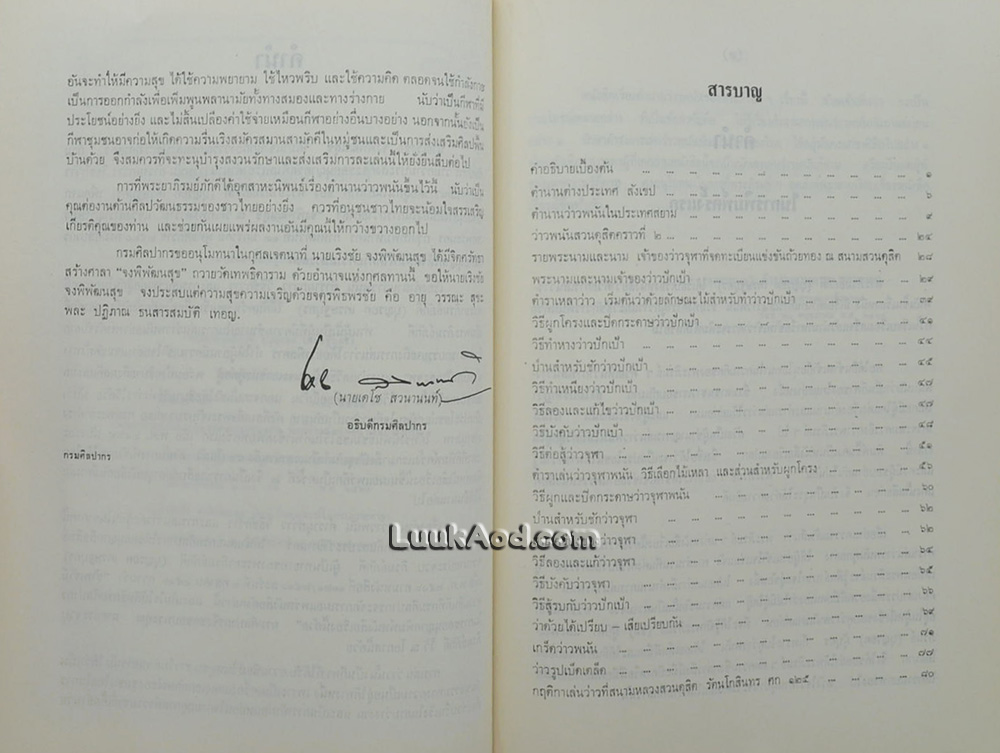 อันจะทำให้มีความสุข ได้ใช้ความพยายาม ใช้ไหวพริบ และใช้ความคิด ตลอดจนใช้กำลังกาย
เป็นการออกกำลังเพื่อเพิ่มพูนพลานามัยทั้งทางสมองและทางร่างกาย นับว่าเป็นกีฬาที่มี
ประโยชน์อย่างยิ่ง และไม่สิ้นเปลืองค่าใช้จ่ายเหมือนกีฬาอย่างอื่นบางอย่าง นอกจากนั้นยังเป็น
กีฬาชุมชนอาจก่อให้เกิดความรื่นเริงสมัครสมานสามัคคีในหมู่ชนและเป็นการส่งเสริมศิลปพื้น
บ้านด้วย จึงสมควรที่จะทะนุบำรุงสงวนรักษาและส่งเสริมการละเล่นนี้ให้ยั่งยืนสืบต่อไป
การที่พระยาภิรมย์ภักดีได้อุตสาหะนิพนธ์เรื่องตำนานว่าวพนันขึ้นไว้นี้ นับว่าเป็น
คุณต่องานด้านศิลปวัฒนธรรมของชาวไทยอย่างยิ่ง ควรที่อนุชนชาวไทยจะน้อมใจสรรเสริญ
เกียรติคุณของท่าน และช่วยกันเผยแพร่ผลงานอันมีคุณนี้ให้กว้างขวางออกไป
กรมศิลปากรขออนุโมทนาในกุศลเจตนาที่ นายเริงชัย จงพิพัฒนสุข ได้มีจิตศรัทธา
สร้างศาลา “จงพิพัฒนสุข” ถวายวัดเทพธิดาราม ด้วยอำนาจแห่งกุศลทานนี้ ขอให้นายเริงชัย
จงพิพัฒนสุข จงประสบแต่ความสุขความเจริญด้วยจตุรพิธพรชัย คือ อายุ วรรณะ สุขะ
พละ ปฏิภาณ ธนสารสมบัติ เทอญ.
(นายเดโช สวนานนท์)
อธิบดีกรมศิลปากร
กรมศิลปากร
สารบาญ
คำอธิบายเบื้องต้น ... ... ... ... ... ... ... ๑
ตำนานต่างประเทศ สังเขป ... ... ... ... ... ... ๖
ตำนานว่าวพนันในประเทศสยาม ... ... ... ... ... ๙
ว่าวพนันสวนดุสิตคราวที่ ๒ ... ... ... ... ... ๒๔
รายพระนามและนาม เจ้าของว่าวจุฬาที่จดทะเบียนแข่งขันถ้วยทอง ณ สนามสวนดุสิต ๒๘
พระนามและนามเจ้าของว่าวปักเป้า ... ... ... ... ๒๙
ตำราเหลาว่าว เริ่มต้นว่าด้วยลักษณะไม้สำหรับทำว่าวปักเป้า ... ... ... ๓๙
วิธีผูกโครงและปิดกระดาษว่าวปักเป้า ... ... ... ... ๔๑
วิธีทำหางว่าวปักเป้า ... ... ... ... ... ๔๔
ป่านสำหรับชักว่าวปักเป้า ... ... ... ... ... ๔๕
วิธีทำเหนียงว่าวปักเป้า ... ... ... ... ... ๔๗
วิธีลองและแก้ไขว่าวปักเป้า ... ... ... ... ... ๔๗
วิธีบังคับว่าวปักเป้า ... ... ... ... ... ๔๘
วิธีต่อสู้ว่าวจุฬา ... ... ... ... ... ๕๑
ตำราเล่นว่าวจุฬาพนัน วิธีเลือกไม้เหลา และส่วนสำหรับผูกโครง ... ... ๕๖
วิธีผูกและปิดกระดาษว่าวจุฬาพนัน ... ... ... ... ๖๐
ป่านสำหรับชักว่าวจุฬา ... ... ... ... ... ๖๒
ว่าวจุฬา ... ... ... ... ... ๖๒
วิธีลองและแก้ว่าวจุฬา ... ... ... ... ... ๖๔
วิธีบังคับว่าวจุฬา ... ... ... ... ... ๖๕
วิธีสู้รบกับว่าวปักเป้า ... ... ... ... ... ๖๖
ว่าด้วยได้เปรียบ – เสียเปรียบกัน ... ... ... ... ๖๙
เกร็ดว่าวพนัน ... ... ... ... ... ๗๑
ว่าวรูปเบ็ดเตล็ด ... ... ... ... ... ๗๗
กฤติกาเล่นว่าวที่สนามหลวงสวนดุสิต รัตนโกสินทร ศก ๑๒๕ ... ... ... ๘๐
LuukAod.com